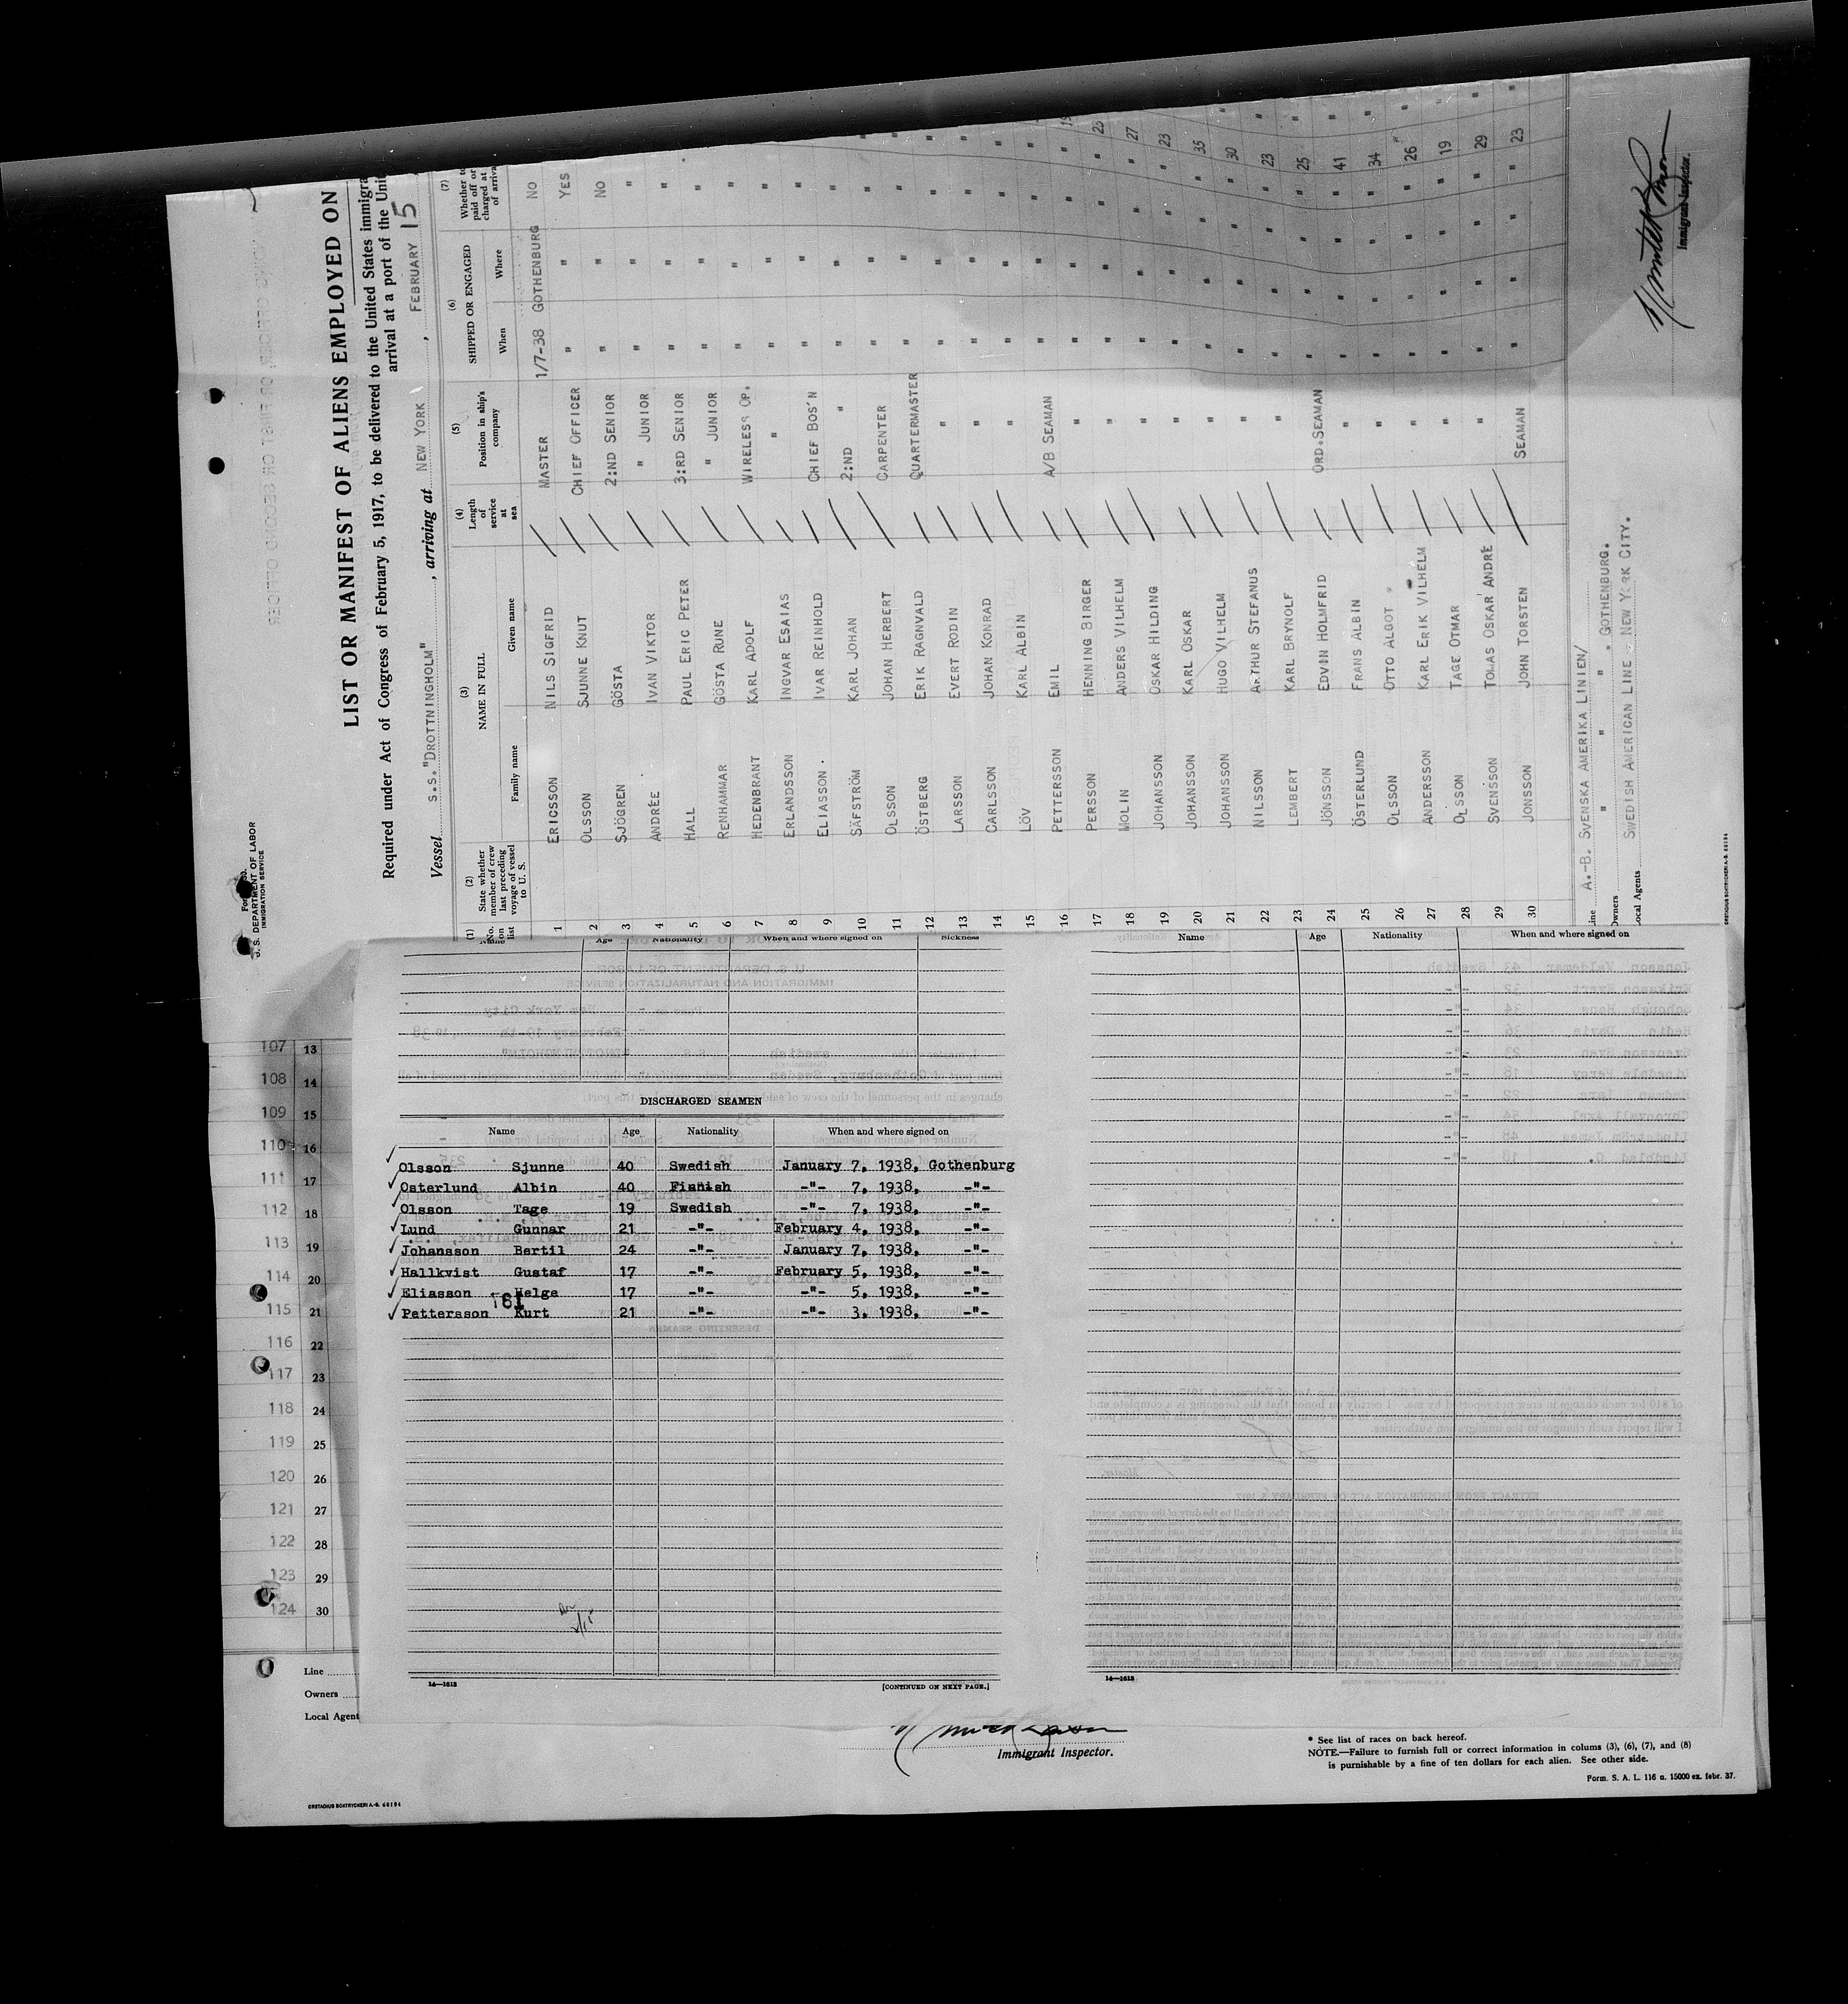 Form 680.
U. S. DEPARTMENT OF LABOR
IMMIGRATION SERVICE
LIST OR MANIFEST OF ALIENS EMPLOYED ON
Required under Act of Congress of February 5, 1917, to be delivered to the United States immigra
arrival at a port of the Unit
Vessel S.S."DROTTNINGHOLM", arriving at NEW YORK, FEBRUARY 15
(1) (2) (3) (4) (5) (6) (7)
No. on list State whether member of crew last preceding voyage of vessel to U. S. NAME IN FULL Length of service at sea Position in ship's company SHIPPED OR ENGAGED Whether to paid off or charged at of arriva
Family name Given name When Where
1 ERICSSON NILS SIGFRID MASTER 1/7-38 GOTHENBURG NO
2 OLSSON SJUNNE KNUT CHIEF OFFICER " " YES
3 SJÖGREN GÖSTA 2:ND SENIOR " " NO
4 ANDRÉE IVAN VIKTOR " JUNIOR " " "
5 HALL PAUL ERIC PETER 3:RD SENIOR " " "
6 RENHAMMAR GÖSTA RUNE " JUNIOR " " "
7 HEDENBRANT KARL ADOLF WIRELESS OP. " " "
8 ERLANDSSON INGVAR ESAIAS " " " "
9 ELIASSON IVAR REINHOLD CHIEF BOS'N " " "
10 SÄFSTRÖM KARL JOHAN 2:ND " " " "
11 OLSSON JOHAN HERBERT CARPENTER " " "
12 ÖSTBERG ERIK RAGNVALD QUARTERMASTER " " "
13 LARSSON EVERT RODIN " " " "
14 CARLSSON JOHAN KONRAD " " " "
15 LÖV KARL ALBIN " " " "
16 PETTERSSON EMIL A/B SEAMAN " " "
17 PERSSON HENNING BIRGER " " " " 23
18 MOLIN ANDERS VILHELM " " " " 27
19 JOHANSSON OSKAR HILDING " " " " 23
20 JOHANSSON KARL OSKAR " " " " 35
21 JOHANSSON HUGO VILHELM " " " " 30
22 NILSSON ARTHUR STEFANUS " " " " 23
23 LEMBERT KARL BRYNOLF " " " " 25
24 JÖNSSON EDVIN HOLMFRID ORD.SEAMAN " " " 41
25 ÖSTERLUND FRANS ALBIN " " " " 34
26 OLSSON OTTO ALGOT " " " " 26
27 ANDERSSON KARL ERIK VILHELM " " " " 19
28 OLSSON TAGE OTMAR " " " " 29
29 SVENSSON TOMAS OSKAR ANDRÉ " " " " 23
30 JONSSON JOHN TORSTEN SEAMAN " "
Line A.-B. SVENSKA AMERIKA LINIEN/
Owners " " " . GOTHENBURG.
Local Agents SWEDISH AMERICAN LINE. NEW YORK CITY.
Immigrant Inspector.
Name Age Nationality When and where signed on Sickness
Name Age Nationality When and where signed on
DISCHARGED SEAMEN
Name Age Nationality When and where signed on
Olsson Sjunne 40 Swedish January 7, 1938, Gothenburg
Osterlund Albin 40 Finnish -"- 7, 1938, -"-
Olsson Tage 19 Swedish -"- 7, 1938, -"-
Lund Gunnar 21 -"- February 4, 1938, -"-
Johansson Bertil 24 -"- January 7, 1938, -"-
Hallkvist Gustaf 17 -"- February 5, 1938, -"-
Eliasson Helge 17 -"- -"- 5, 1938, -"-
181
Pettersson Kurt 21 -"- -"- 3, 1938, -"-
16—1618
[CONTINUED ON NEXT PAGE.]
16—1618
107 13
108 14
109 15
110 16
111 17
112 18
113 19
114 20
115 21
116 22
117 23
118 24
119 25
120 26
121 27
122 28
123 29
124 30
Line
Owners
Local Agent
Immigrant Inspector.
* See list of races on back hereof.
NOTE.—Failure to furnish full or correct information in colums (3), (6), (7), and (8)
is punishable by a fine of ten dollars for each alien. See other side.
Form. S. A. L. 116 a. 15000 ex. febr. 37.